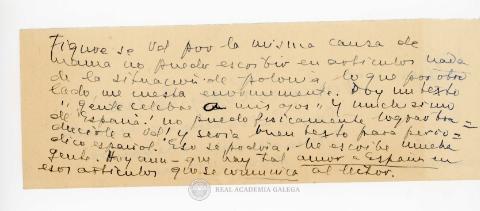 Figure se Vd por la misma causa de
mama no puedo escribir en articulos nada
de la situación de Polonia, lo que por otro
lado, me resta enormemente. Doy un texto
"gente celebre a mis ojos" y muchisimo
de España! no puedo fisicamente lograr tra=
ducirle a Vd! y seria buen texto para perio=
dico español. Eso se podria. Me escribe mucha
gente. Hoy aun - que hay tal amor a España en
esos articulos que se comunica al lector.
REAL ACADEMIA GALEGA